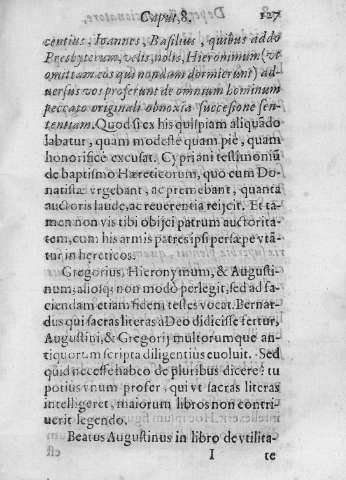 Caput. 8. 127
centius, Ioannes, Basilius, quibus addo
Presbyterum, velis, nolis, Hieronimum (vt
omittam eos qui nondum dormierunt) ad
uersus vos proferunt de omnium hominum
peccato originali obnoxia succesione sen-
tentiam. Quod si ex his quispiam aliquãdo
labatur, quam modestè quam piè, quam
honorificè excusat. Cypriani testimoniũ
de baptismo Hæreticorum, quo eum Do-
natistæ vrgebant, ac premebant, quanta
auctoris laude, ac reuerentia reijcit. Et ta-
men non vis tibi obijci patrum auctorita-
tem, cum his armis patres ipsi persæpe vtã-
tur in hereticos.
Gregorius, Hieronymum, & Augusti-
num, aliosq; non modò perlegit, sed ad fa-
ciendam etiam fidem testes vocat. Bernar-
dus qui sacras literas à Deo didicisse fertur,
Augustini, & Gregorij multorumque an-
tiquorum scripta diligentius euoluit. Sed
quid necesse habeo de pluribus dicere? tu
potius vnum profer, qui vt sacras literas
intelligeret, maiorum libros non contri-
uerit legendo.
Beatus Augustinus in libro de vtilita-
I te